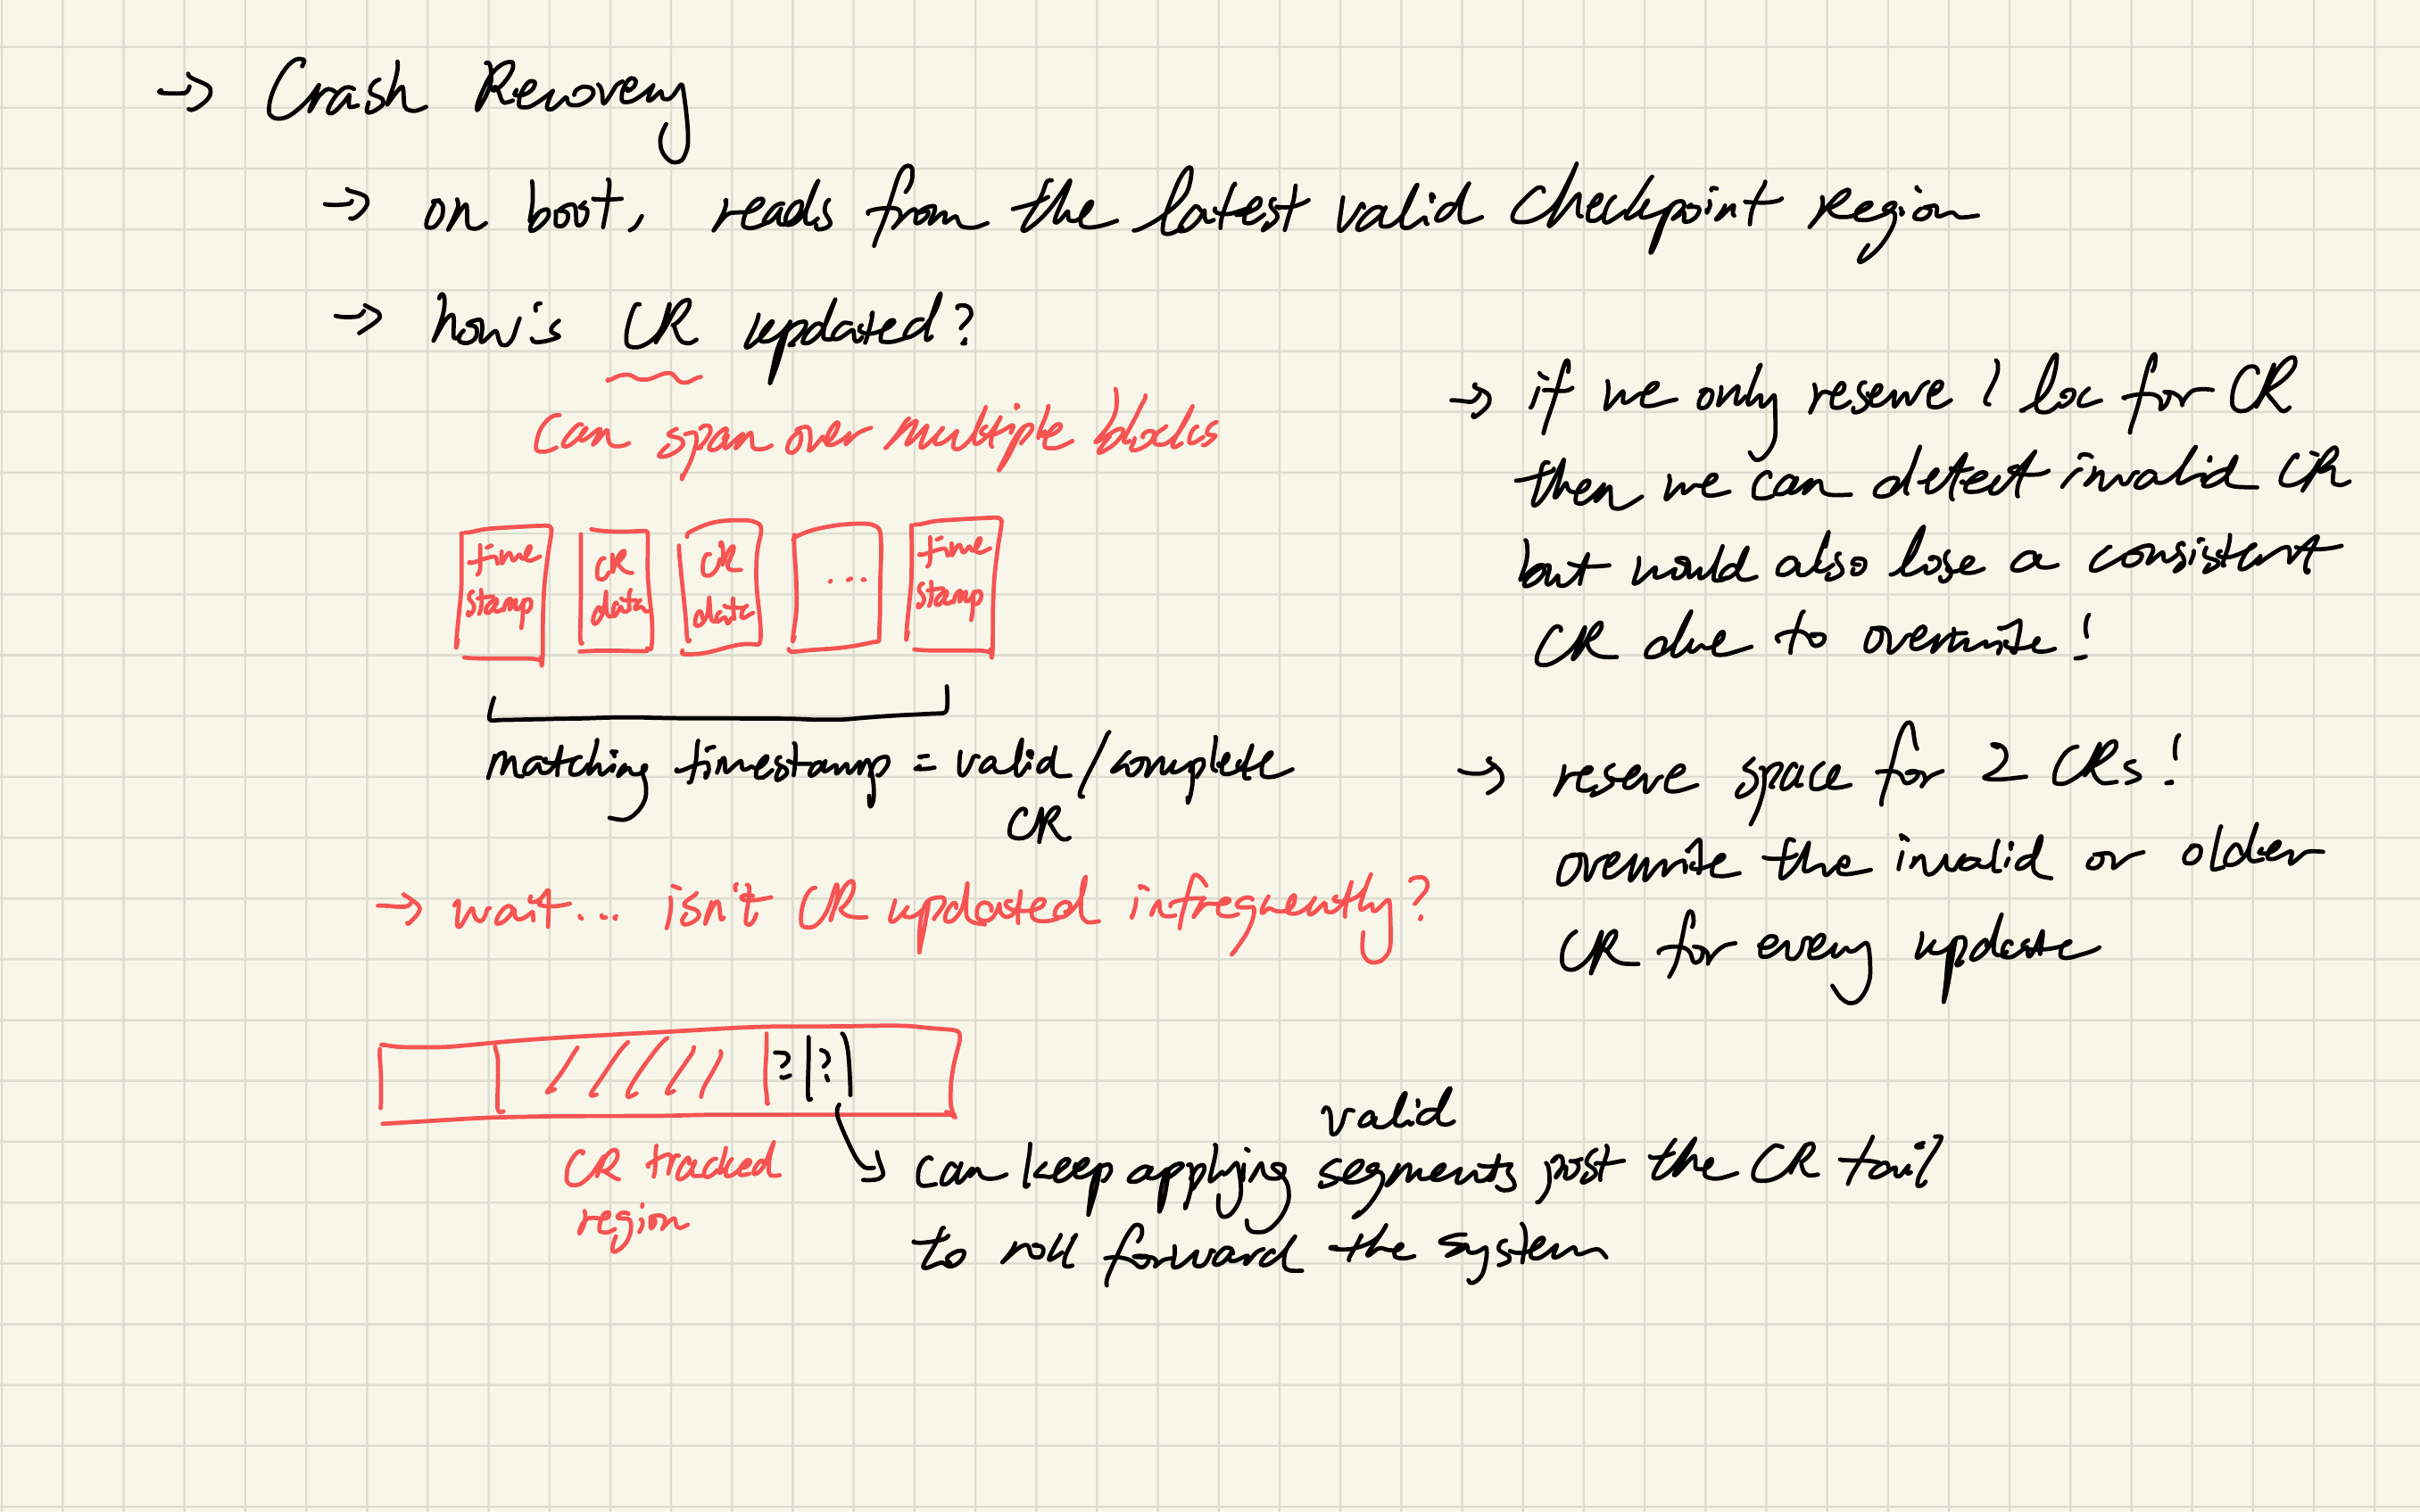 → Crash Recovery
→ on boot, reads from the latest valid Checkpoint Region
→ how's CR updated?
can span over multiple blocks
time stamp
CR data
CR data
...
time stamp
matching timestamp = valid/complete
CR
→ if we only reserve 1 loc for CR
then we can detect invalid CR
but would also lose a consistent
CR due to overwrite!
→ reserve space for 2 CRs!
overwrite the invalid or older
CR for every update
→ wait... isn't CR updated infrequently?
? ?
CR tracked
region
valid
can keep applying segments post the CR tail
to roll forward the system